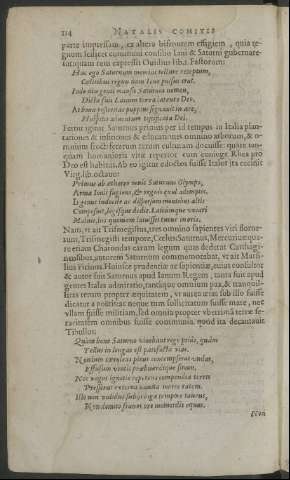 114 NATALIS COMITIS
parte impressam, ex altera bifrontem effigiem, quia re-
gnum scilicet communi consilio Iani & Saturni gubernare-
tur, quam rem expressit Ouidius lib. 1. Fastorum:
Hac ego Saturnum memini tellure receptum,
Cœlitibus regnis à Ioue pulsus erat.
Inde diu genti mansit Saturnia nomen,
Dicta fuit Latium terra latente Deo.
At bona posteritas puppim signauit in ære,
Hospitis aduentum testificata Dei.
Fertur igitur Saturnus primus per id tempus in Italia plan-
tationes & insitiones & educationes omnino arborum, & o-
mnium fructiferarum rerum culturam docuisse: quare tan-
quam humanioris vitæ repertor cum coniuge Rhea pro
Deo est habitus. Ab eo igitur edoctos fuisse Italos ita cecinit
Virg. lib. octauo:
Primus ab æthereo venit Saturnus Olympo,
Arma Iouis fugiens, & regnis exul ademptis.
Is genus indocile ac dispersum montibus altis
Composuit, legesque dedit, Latiumque vocari
Maluit, his quoniam latuisset tutus in oris.
Nam, vt ait Trismegistus, tres omnino sapientes viri
Trismegisti tempore, Cœlus, Saturnus, Mercurius:
legum quas dedicat Carthagi-
nensibus, autorem Saturnum commemorabat, vt ait
Victrius. Huius prudentiæ & sapientiæ,
& autor fuit Saturnus apud Ianum Regem, tanta fuit apud
gentes Italas admiratio, tantaque omnium pax, & tranquil-
litas rerum propter æquitatem, vt aurea ætas sub illo fuisse
dicatur à politicis: neque tum sollicitatum fuisse mare, nec
vllam fuisse militiam, sed omnia propter vberrimam terræ fe-
racitatem omnibus fuisse communia, quod ita decantauit
Tibullus:
Quàm bene Saturno viuebant rege priùs, quàm
Tellus in longas est patefacta vias.
Nondum cæruleas pinus contempserat vndas,
Effusum ventis præbueratque sinum.
Nec vagus ignotis repetens compendia terris
Presserat externa nauita merce ratem.
Illo non validus subiit iuga tempore taurus,
Non domito frenos ore momordit equus.
Non